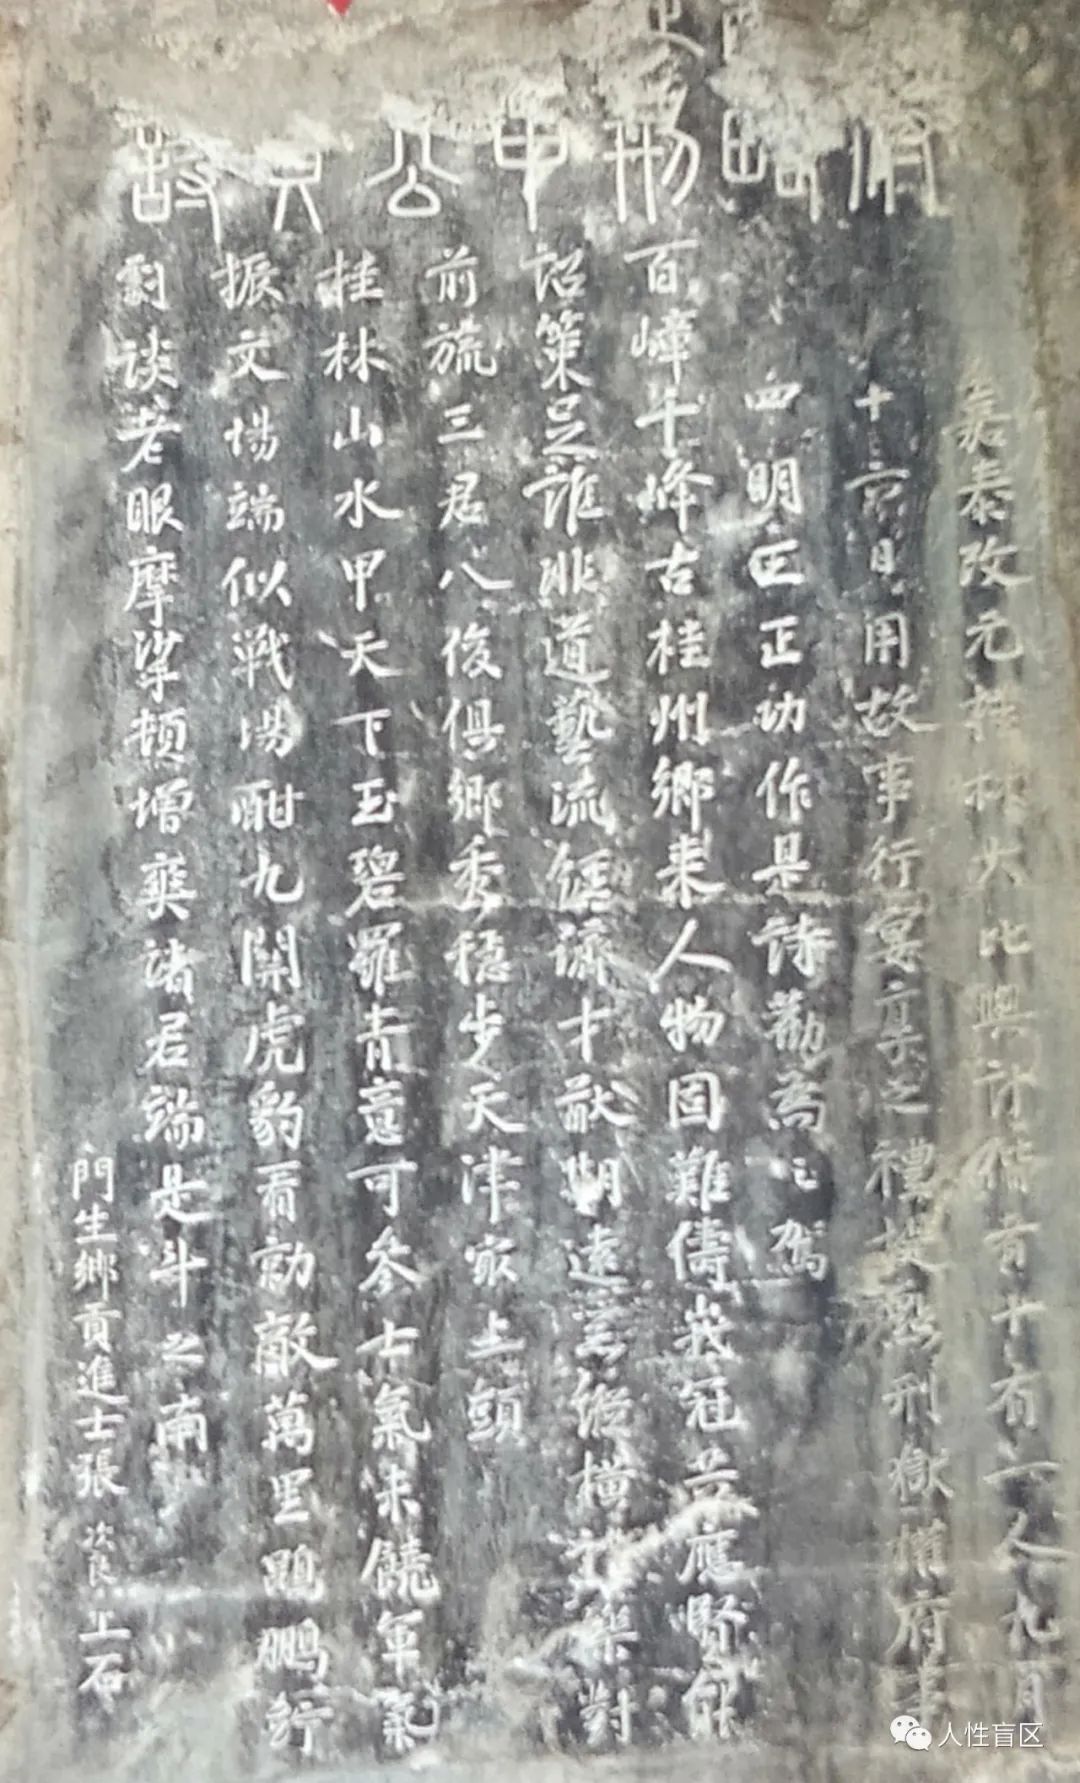 刑 公
嘉泰改元桂林大比與計偕者十有一人九月
十六日用故事行宴享之禮提點刑獄權府事
四明王正功作是詩勸為之駕
百嶂千峰古桂州鄉來人物固難儔峩冠共應賢能
詔策足誰非道藝流經濟才猷期遠器縱橫禮樂對
前旒三君八俊俱鄉秀穩步天津最上頭
桂林山水甲天下玉碧羅青意可參士氣未饒軍氣
振文場端似戰場酣九關虎豹看勍敵萬里鵾鵬佇
劇談老眼摩挲頓增爽諸君端是斗之南
門生鄉貢進士張次良上石
人性盲区